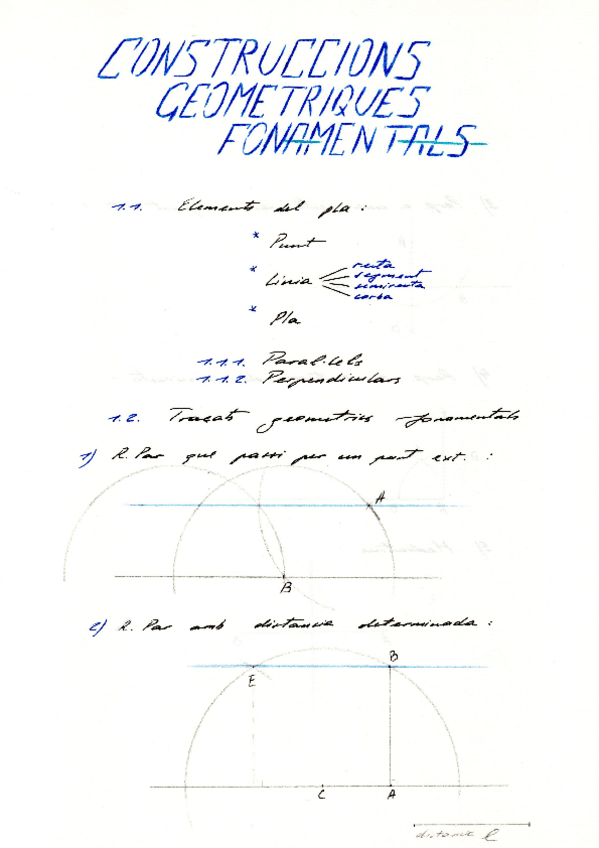 CONSTRUCCIONS
GEOMETRIQUES
FONAMENTALS
1.1. Elements del pla :
* Punt
* Linia
recta
segment
semirecta
corba
* Pla
1.1.1. Paral·lels
1.1.2. Perpendiculars
1.2. Traçats geometrics fonamentals
1) R. Par que passi per un punt ext. :
A
B
2) R. Par amb distancia determinada :
B
E
C A
distancia l